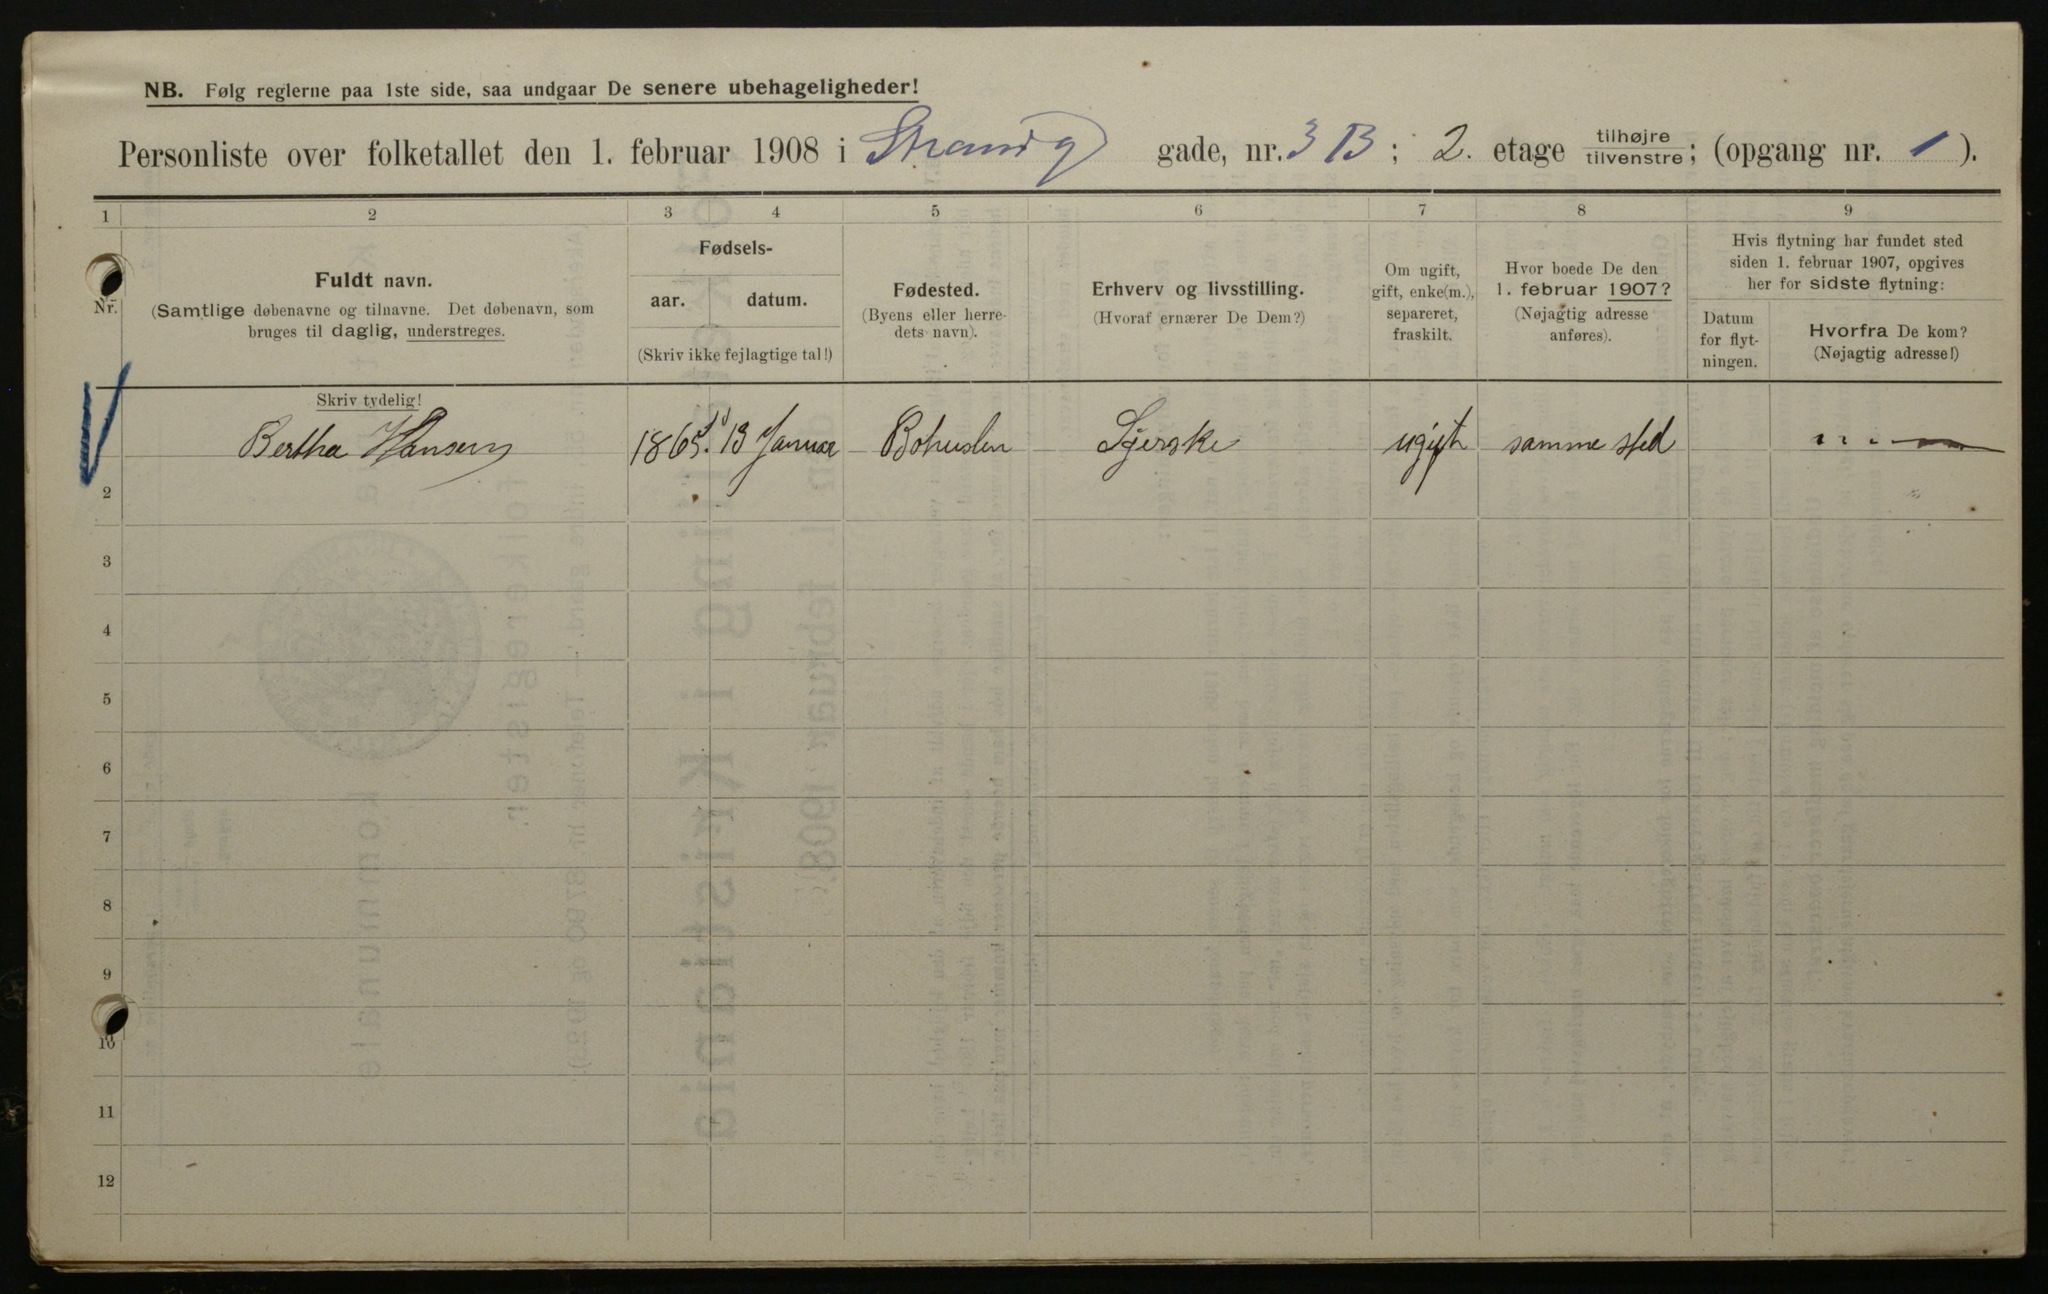 NB. Følg reglerne paa 1ste side, saa undgaar De senere ubehageligheder!
Personliste over folketallet den 1. februar 1908 i Strandg gade, nr. 3 B ; 2. etage tilhøjre/tilvenstre; (opgang nr. 1 ).
1 2 3 4 5 6 7 8 9
Nr.
Fuldt navn.
(Samtlige døbenavne og tilnavne. Det døbenavn, som
bruges til daglig, understreges.
Fødsels-
aar. datum.
(Skriv ikke fejlagtige tal!)
Fødested.
(Byens eller herre-
dets navn).
Erhverv og livsstilling.
(Hvoraf ernærer De Dem?)
Om ugift,
gift, enke(m.),
separeret,
fraskilt.
Hvor boede De den
1. februar 1907?
(Nøjagtig adresse
anføres).
Hvis flytning har fundet sted
siden 1. februar 1907, opgives
her for sidste flytning:
Datum
for flyt-
ningen.
Hvorfra De kom?
(Nøjagtig adresse!)
Skriv tydelig!
Bertha Hansen 1865 13 Januar Bohuslen ugift samme sted
2
3
4
5
6
7
8
9
10
11
12